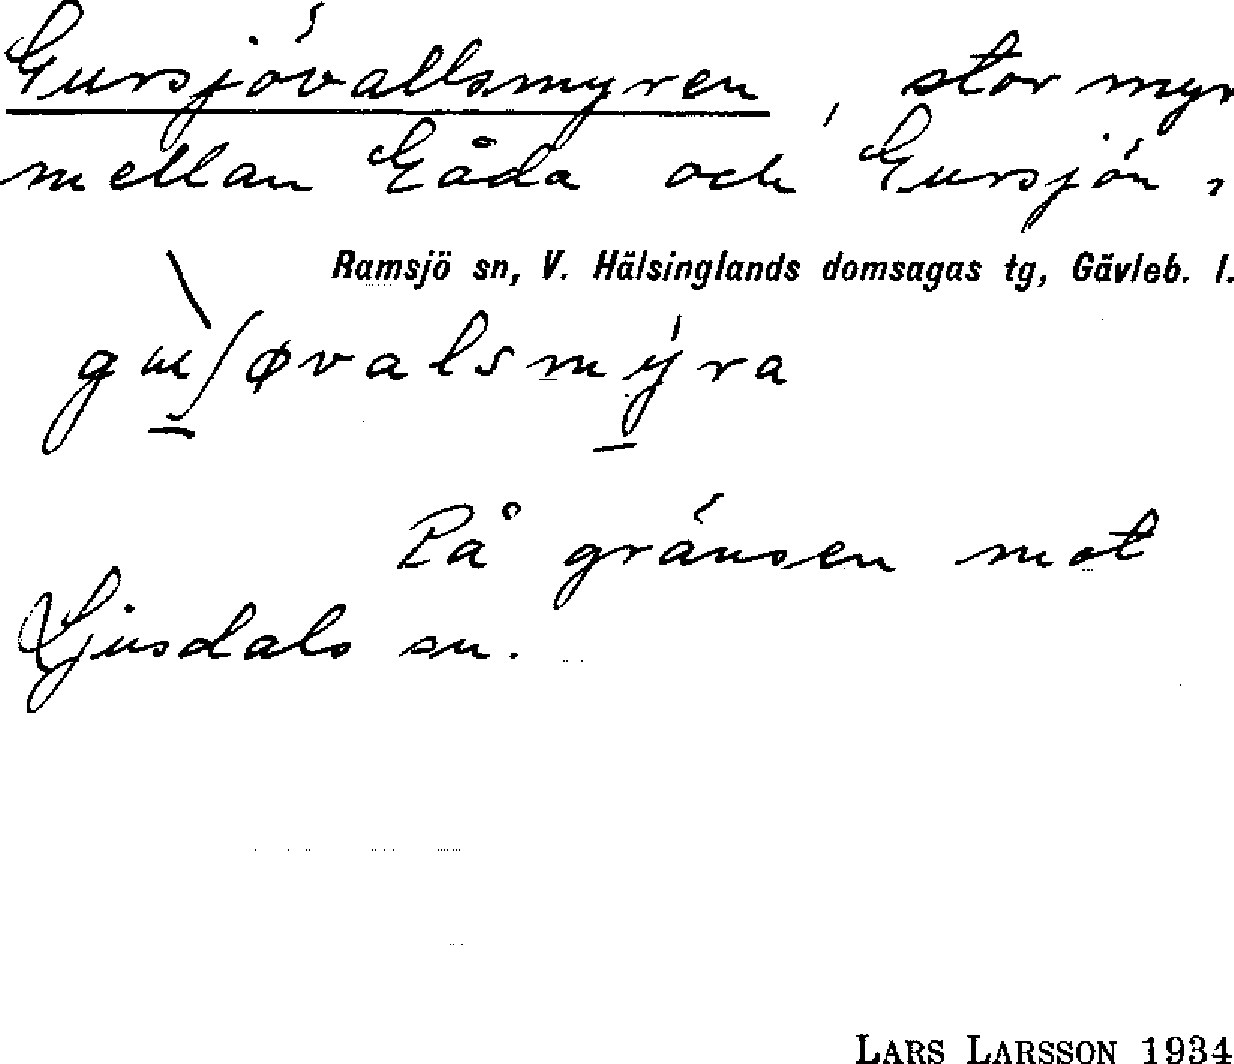 Gursjövallsmyren, stor myr
mellan Gåda och Gursjön,
Ramsjö sn, V. Hälsinglands domsagas tg, Gävleb. l.
gu̱ʃøvalsmý̱ra
På gränsen mot
Ljusdals sn.
LARS LARSSON 1934